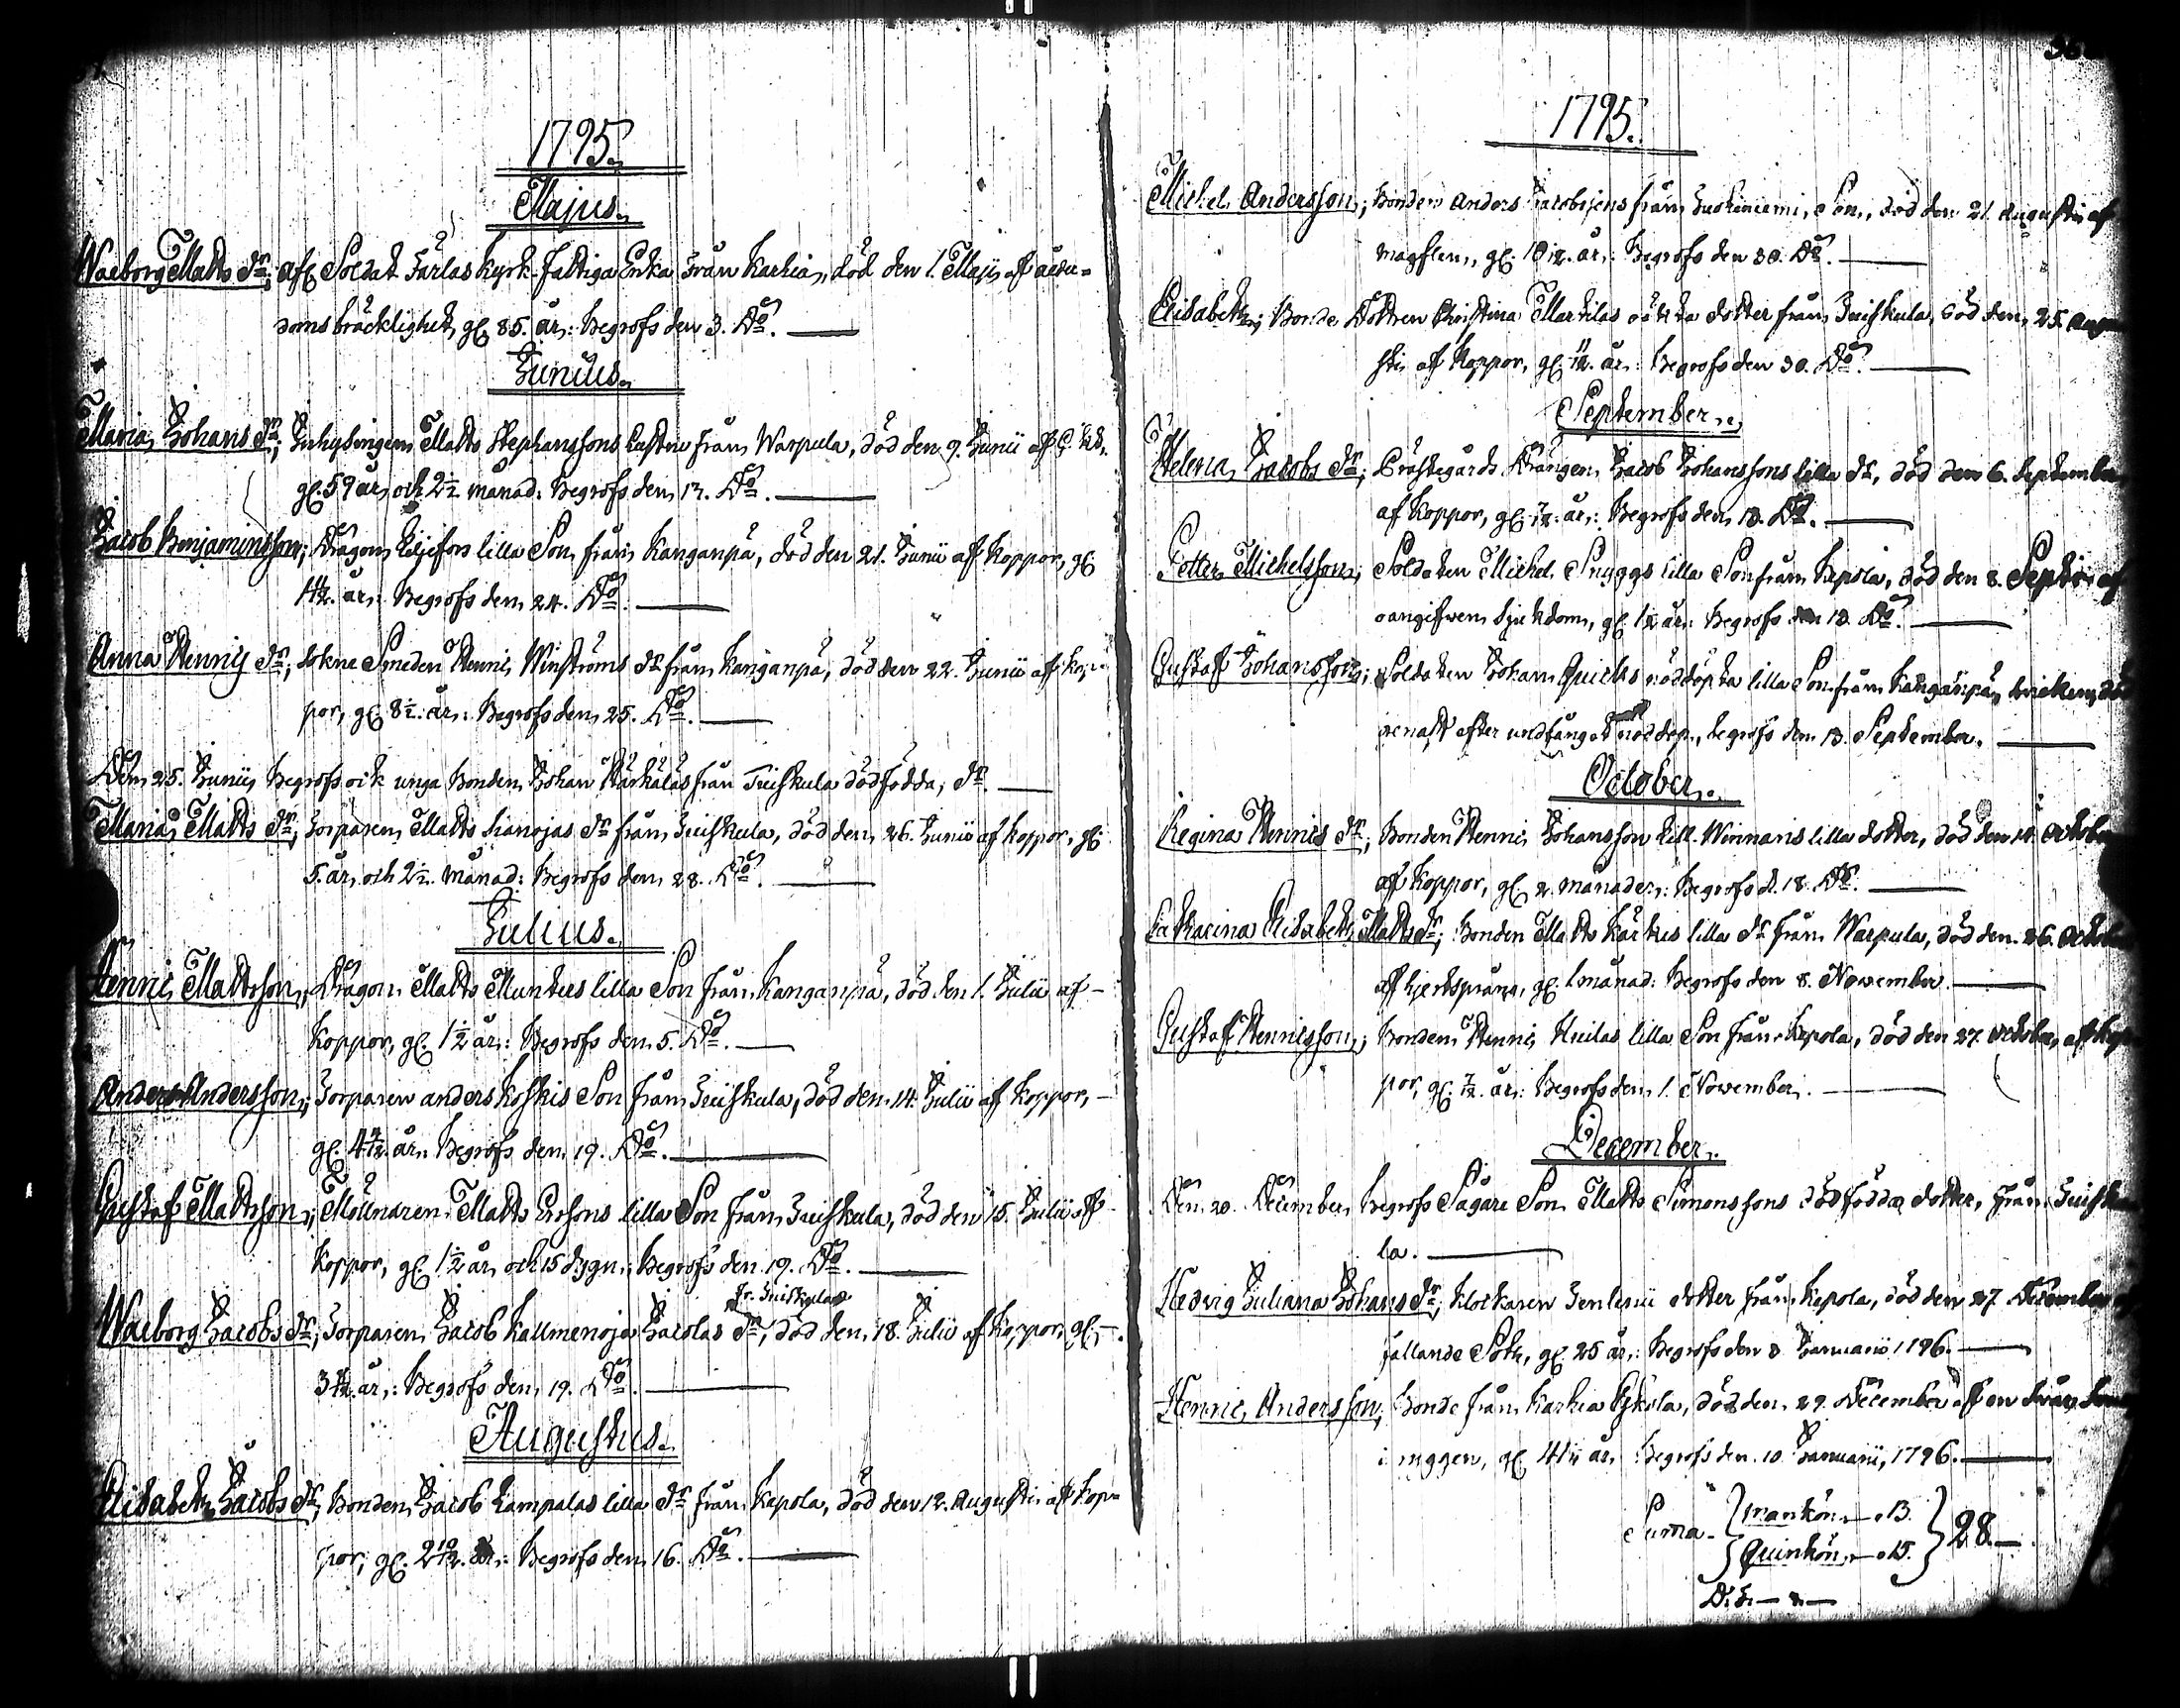 1795.
Majus.
Waborg Matts dr; afl. Soldat Järlas kyrk-fattiga Enka från Karkia, död den 1. Maji af ålder-
doms bräcklighet, gl. 85. år: Begrofs den 3. Do.
Junius.
Maria Johans dr; Inhysingen Matts Stephanssons hustru från Warpula, död den 9. Junii af
gl. 59 år och 2½ månad: Begrofs den 12. Do.
Jacob Benjaminsson; Dragon Liljefors lilla Son från Kanganpä, död den 21. Junii af koppor, gl.
år: Begrofs den 24. Do.
Anna Henric dr; Sokne Smeden Henric Winströms dr från Kanganpä, död den 22. Junii af kop-
por, gl. 8½ år: Begrofs den 25. Do.
Den 25. Junii Begrofs ock unga Bonden Johan Härkäläs från Juiskula dödfödda dr.
Maria Matts dr; Torparen Matts Lianojas dr från Juiskula, död den 26. Junii af koppor, gl.
5. år och 2½ månad: Begrofs den 28. Do.
Julius.
Henric Mattsson; Dragon Matts Munters lilla Son från Kanganpä, död den 1. Julii af
koppor, gl. 1½ år: Begrofs den 5. Do.
Anders Andersson; Torparen Anders Koskis Son från Juiskula, död den 14. Julii af koppor,
gl. år: Begrofs den 19. Do.
Gustaf Mattsson; Mölnaren Matts Ersons lilla Son från Juiskula, död den 15. Julii af
koppor, gl. 1½ år och 15 dygn: Begrofs den 19. Do.
fr. Juiskula
Waborg Jacobs dr; Torparen Jacob Kallmenoja Jacolas dr, död den 18. Julii af koppor, gl.
år: Begrofs den 19. Do.
Augustus.
Elisabeth Jacobs dr; Bonden Jacob Lampalas lilla dr från Kepola, död den 12. Augusti af kop-
por, gl. 2 10/12. år: Begrofs den 16. Do.
1795.
Michel Andersson; Bonden Anders Jacobssons från Juskiniemi Son, död den 21. Augusti af
magflen, gl. år: Begrofs den 30. Do.
Elisabeth; Bonde Dottren Christina Martilas oäkta dotter från Juiskula, död den 25. Augu
sti af koppor, gl. år: Begrofs den 30. Do.
September.
Helena Jacobs dr; Prästegårds Drängen Jacob Johanssons lilla dr, död den 6. September
af koppor, gl. 7/12. år: Begrofs den 13. Do.
Petter Michelsson; Soldaten Michel Snyggs lilla Son från Kepola, död den 8. Septbr af
oangifwen sjukdom, gl. 1½ år: Begrofs den 13. Do.
Gustaf Johansson; Soldaten Johan Quicks nöddöpta lilla Son från Kanganpä, hvilken dött
genast efter undfånget nöddop, begrofs den 13. September.
October.
Regina Henrics dr; Bonden Henric Johansson Lill-Winnaris lilla dotter, död den 14. October
af koppor, gl. 2. månader: Begrofs d. 18. Do.
Catharina Elisabeth Matts dr; Bonden Matts Kärkis lilla dr från Warpula, död den 26. October
af hjertsprång, gl. 1 månad: Begrofs den 8. November.
Gustaf Henricsson; Bonden Henric Huilas lilla Son från Kepola, död den 27. October, af kop
por, gl. 7/12. år: Begrofs den 1. November.
December.
Den 20. December Begrofs Sågare Son Matts Simonssons dödfödda dotter, från Juisku
la.
Hedvig Juliana Johans dr; Klockaren Zenlenii dotter från Kepola, död den 27. December
fallande Sot, gl. 25 år: Begrofs den 8 Januarii 1796.
Henric Andersson; Bonde från Karkia Öfkola, död den 29. December af en svår
i ryggen, gl. 41 år: Begrofs den 10 Januarii, 1796.
Suma - { Mankön - 13.
Quinkön - 15. } 28.